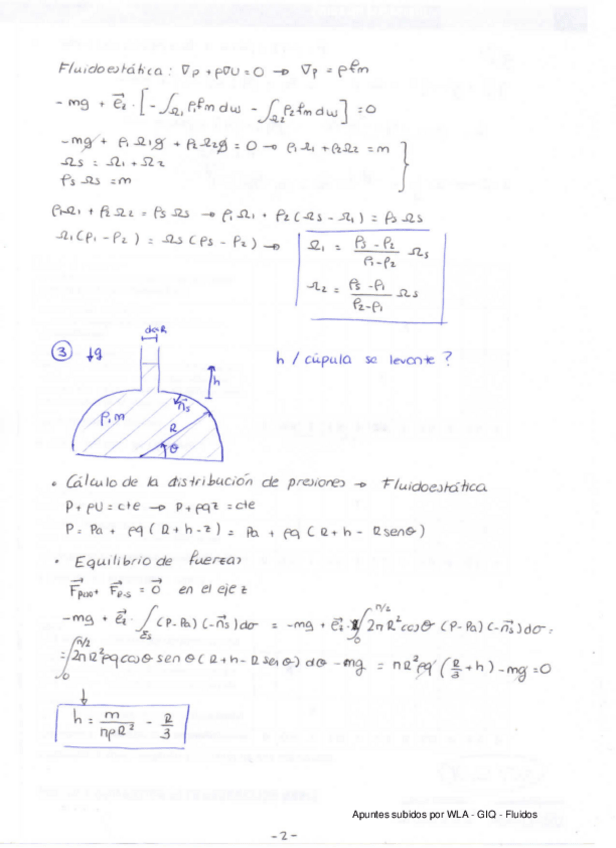 Fluidoestática: ∇p + ρ∇U = 0 → ∇p = ρ f̄m
-mg + e⃗z · [ -∫Ω1 ρ1 f̄m dω - ∫Ω2 ρ2 f̄m dω ] = 0
-mg + ρ1 Ω1 g + ρ2 Ω2 g = 0 → ρ1 Ω1 + ρ2 Ω2 = m
Ωs = Ω1 + Ω2
ρs Ωs = m
ρ1 Ω1 + ρ2 Ω2 = ρs Ωs → ρ1 Ω1 + ρ2 (Ωs - Ω1) = ρs Ωs
Ω1 (ρ1 - ρ2) = Ωs (ρs - ρ2) →
Ω1 = (ρs - ρ2)/(ρ1 - ρ2) Ωs
Ω2 = (ρs - ρ1)/(ρ2 - ρ1) Ωs
d<<R
③ ↓g
h / cúpula se levante ?
h
n⃗s
ρ, m
R
θ
• Cálculo de la distribución de presiones → Fluidoestática
P + ρU = cte → P + ρgz = cte
P = Pa + ρg (R + h - z) = Pa + ρg (R + h - R senθ)
• Equilibrio de fuerzas
en el eje z
-mg + e⃗z · ∫Σs (P - Pa) (-n⃗s) dσ = -mg + e⃗z · ∫0^π/2 2πR² cosθ (P - Pa) (-n⃗s) dσ =
= ∫0^π/2 2πR² ρg cosθ senθ (R + h - R senθ) dθ - mg = πR² ρg (R/3 + h) - mg = 0
↓
h = m/(πρR²) - R/3
Apuntes subidos por WLA - GIQ - Fluidos
-2-